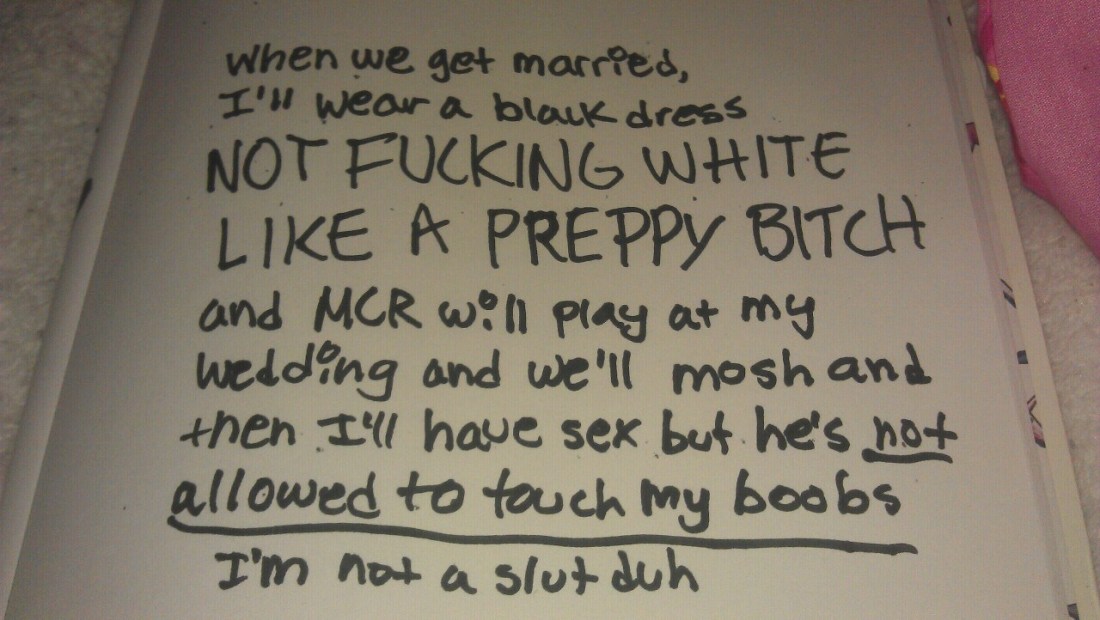 when we get married,
I'll wear a black dress
NOT FUCKING WHITE
LIKE A PREPPY BITCH
and MCR will play at my
wedding and we'll mosh and
then I'll have sex but he's not
allowed to touch my boobs
I'm not a slut duh